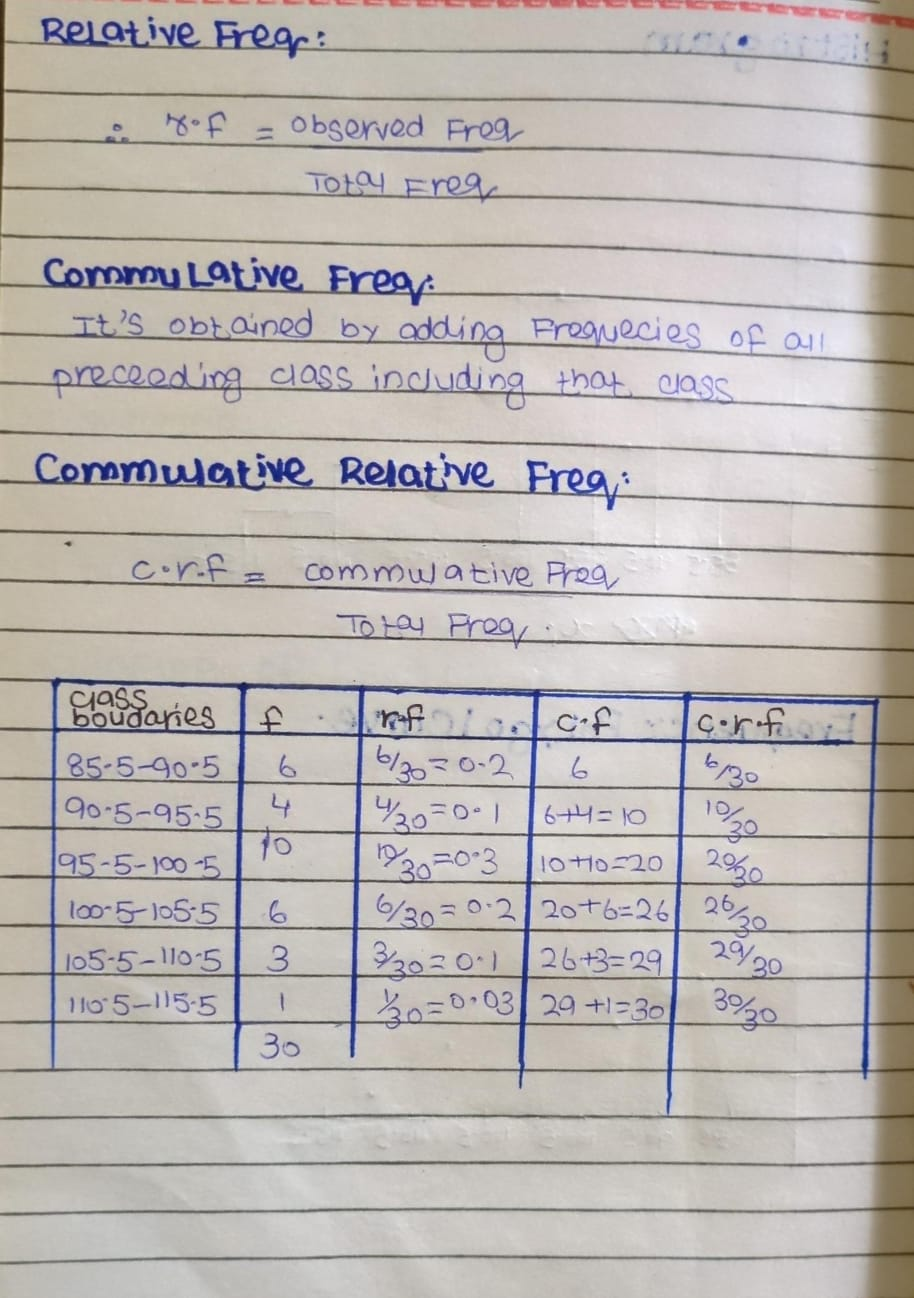 Relative Freq:
∴ r.f = observed Freq
Total Freq
Commulative Freq:
It's obtained by adding Frequecies of all
preceeding class including that class
Commulative Relative Freq:
c.r.f = commulative Freq
Total Freq.
class boudaries f r.f c.f c.r.f
85.5-90.5 6 6/30=0.2 6 6/30
90.5-95.5 4 4/30=0.1 6+4=10 10/30
95-5-100-5 10 10/30=0.3 10+10=20 20/30
100.5-105.5 6 6/30=0.2 20+6=26 26/30
105.5-110.5 3 3/30=0.1 26+3=29 29/30
110.5-115.5 1 1/30=0.03 29+1=30 30/30
30